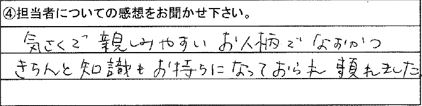 ④担当者についての感想をお聞かせ下さい。
気さくで親しみやすいお人柄でなおかつ
きちんと知識もお持ちになっておられ頼れました